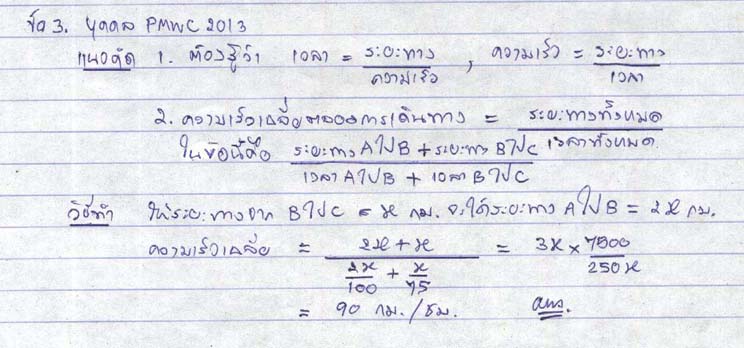 ข้อ 3. บุคคล PMWC 2013
แนวคิด 1. ต้องรู้ว่า เวลา = ระยะทาง / ความเร็ว , ความเร็ว = ระยะทาง / เวลา
2. ความเร็วเฉลี่ยตลอดการเดินทาง = ระยะทางทั้งหมด / เวลาทั้งหมด
ในข้อนี้คือ ระยะทาง A ไป B + ระยะทาง B ไป C / เวลา A ไป B + เวลา B ไป C
วิธีทำ ให้ระยะทางจาก B ไป C = x กม. จะได้ระยะทาง A ไป B = 2x กม.
ความเร็วเฉลี่ย = (2x + x) / (2x/100 + x/75) = 3x × 7500/250x
= 90 กม./ชม. ans.